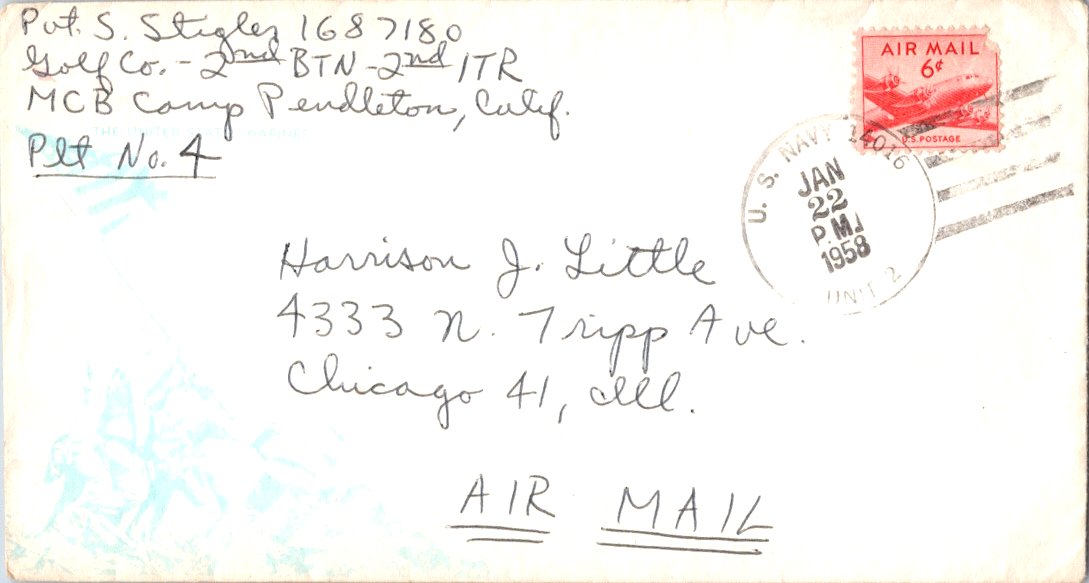 Pvt. S. Stigler 1687180
Golf Co. - 2nd BTN - 2nd ITR
MCB Camp Pendleton, Calif.
Plt No. 4
AIR MAIL
6¢
U.S. POSTAGE
U. S. NAVY 14016
JAN
22
P.M.
1958
UNIT 2
Harrison J. Little
4333 N. Tripp Ave.
Chicago 41, Ill.
AIR MAIL